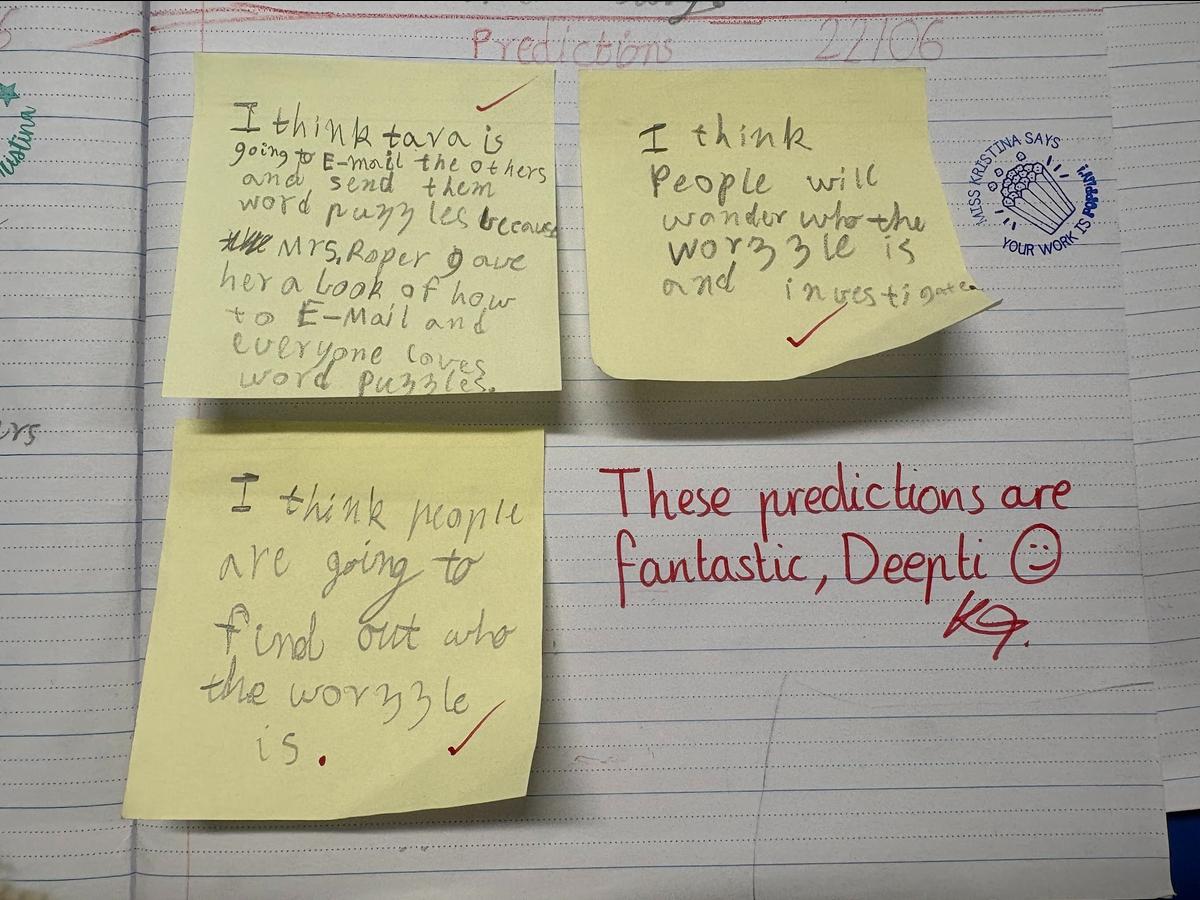 Predictions 22/06
I think tara is
going to E-mail the others
and send them
word puzzles because
the Mrs. Roper gave
her a book of how
to E-Mail and
everyone loves
word puzzles.
I think
People will
wander who the
worzzle is
and investigate
MISS KRISTINA SAYS
YOUR WORK IS
I think people
are going to
find out who
the worzzle
is.
These predictions are
fantastic, Deepti
KG.